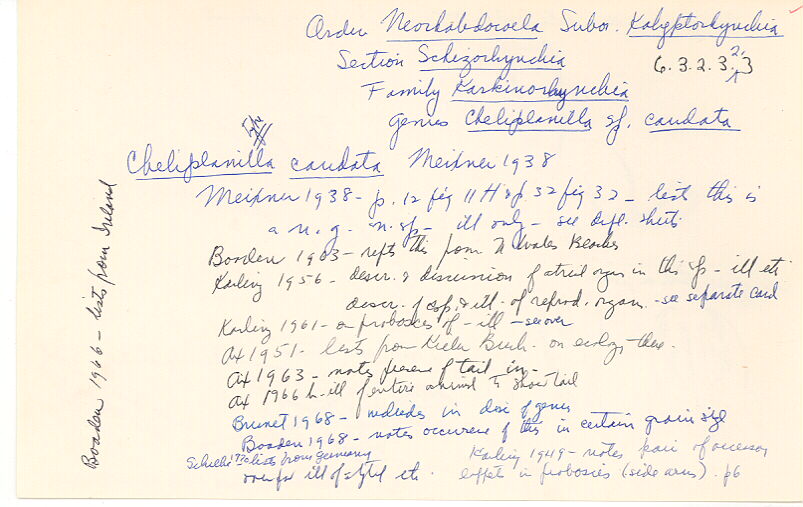 Order Neorhabdocoela Subor. Kalyptorhynchia
Section Schizorhynchia 6.3.2.3.2.3
Family Karkinorhynchia
Genus Cheliplanilla sp. caudata
Cheliplanilla caudata Meixner 1938
Meixner 1938 - p. 12 fig 11 H & p. 32 fig 32 - lists this is
a n. g. n. sp - ill only - see dupl. sheets
Boaden 1963 - repts this from N Wales Beaches
Karling 1956 - descr. & discussion of atrial organ in this sp - ill etc
descr. of cop. & ill. of reprod. organs - see separate card
Karling 1961 - on proboscis of - ill - see over
Ax 1951 - lists from Kieler Bucht - on ecology there.
Ax 1963 - notes presence of tail in -
Ax 1966 b - ill of entire animal to show tail
Brunet 1968 - in disc of genus
Boaden 1968 - notes occurence of this in certain grain size
Karling 1949 - notes pair of accessory
lists from Germany
over for ill of stylet etc. in proboscis (side arms). p6
Boaden 1966 - lists from Ireland